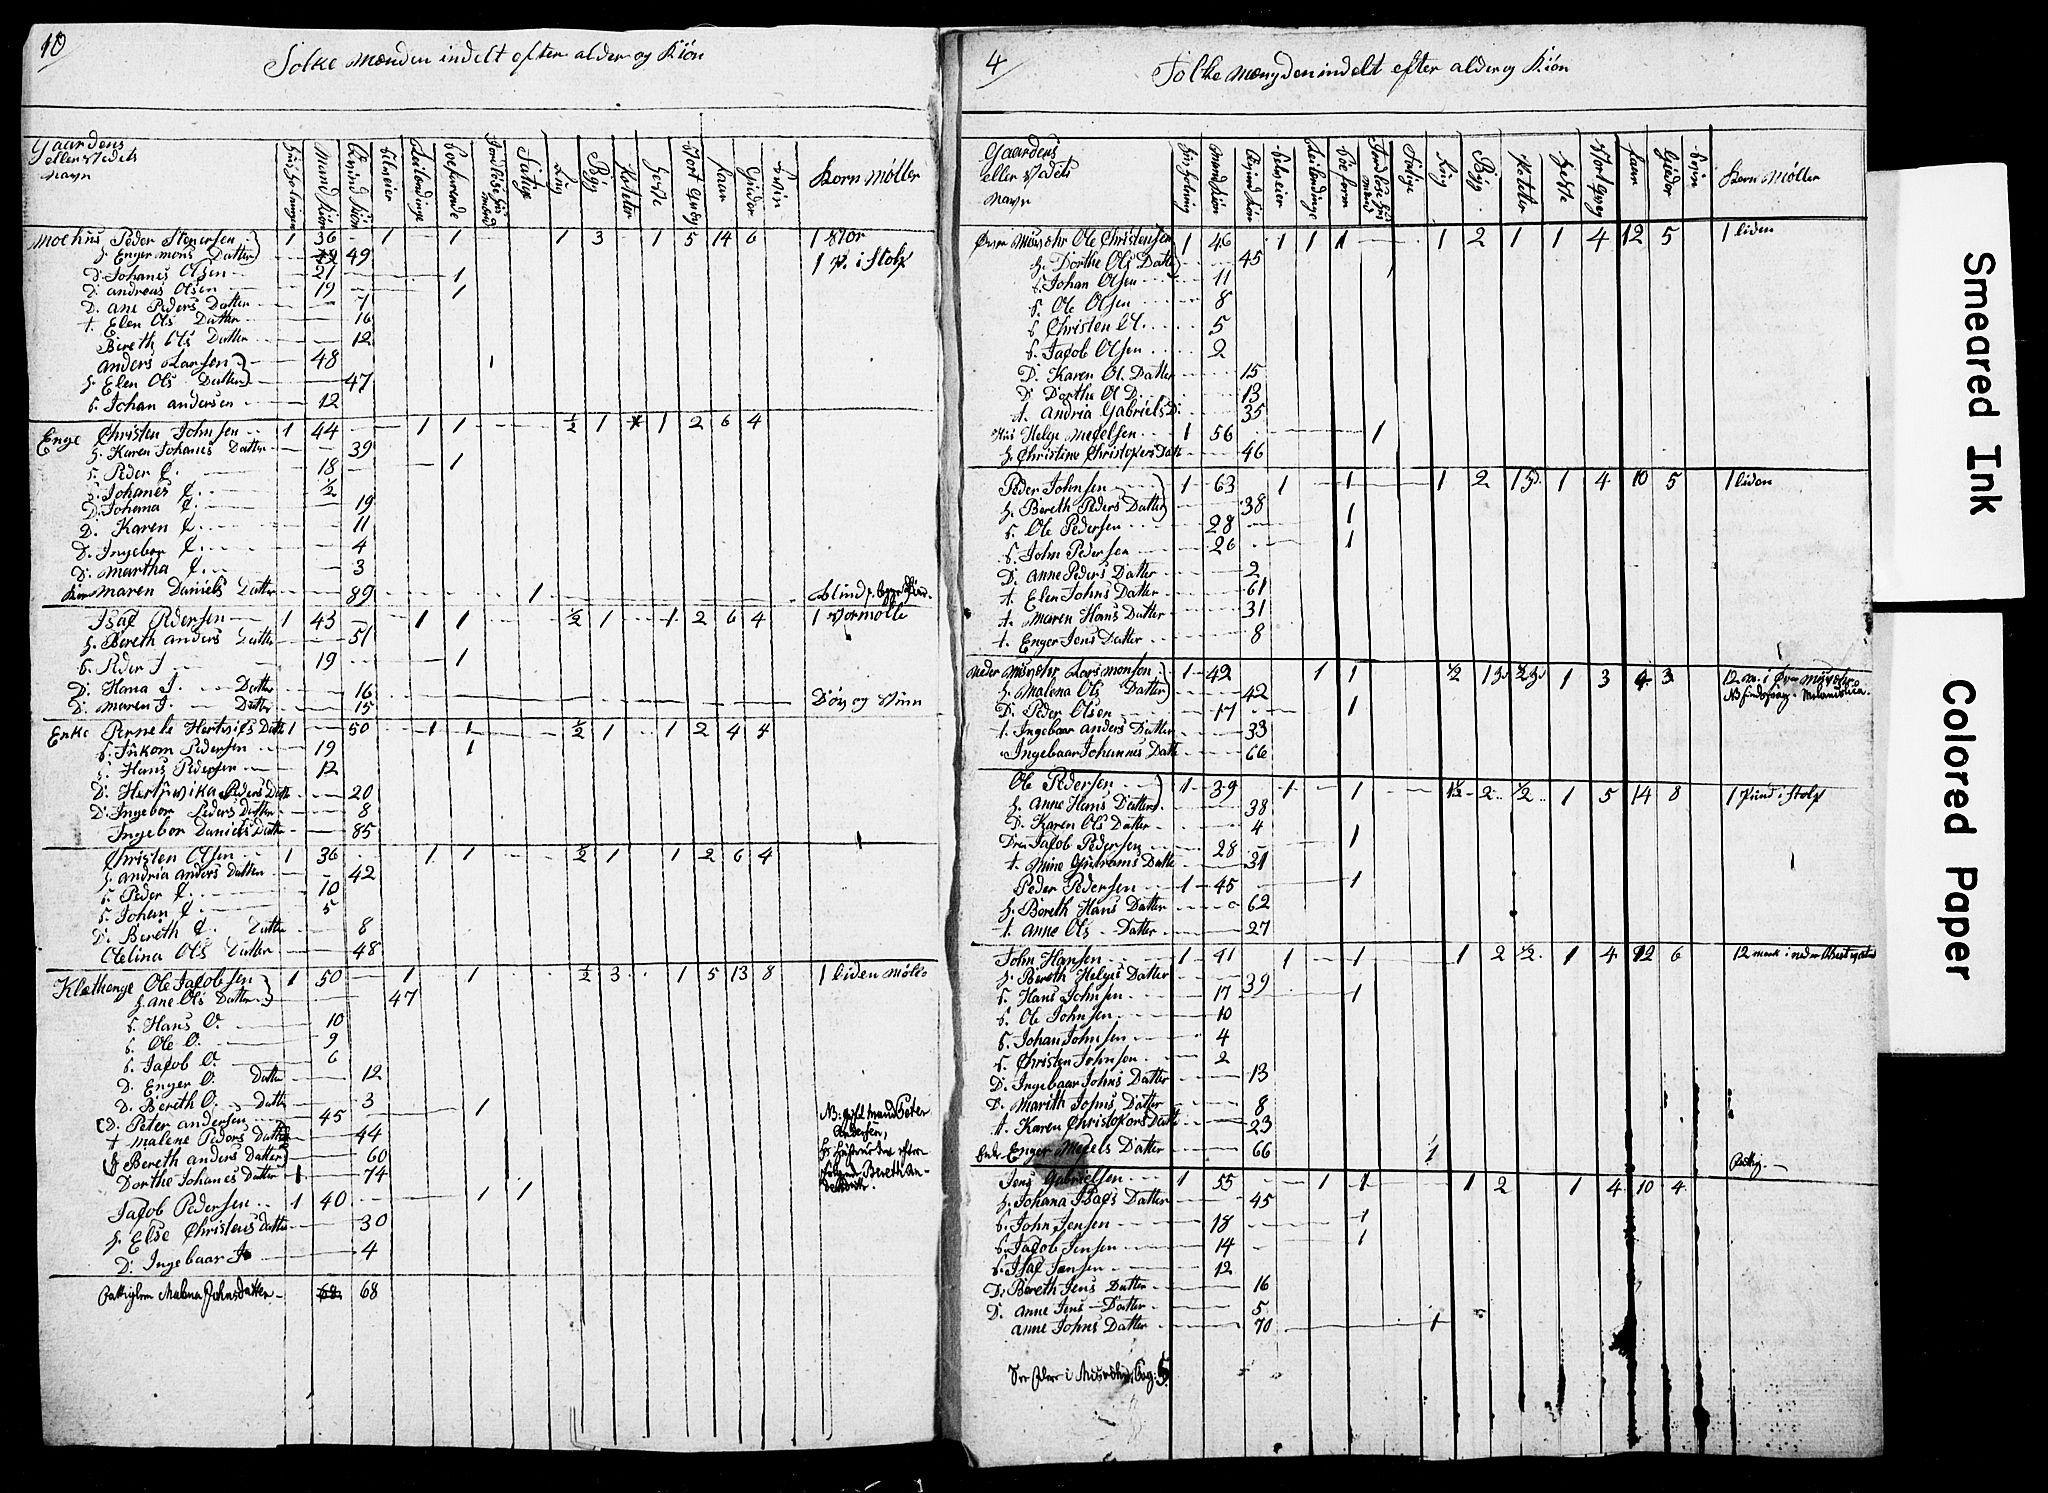 10
Folke mænden indelt efter alder og Kiøn
Gaardens
eller stedets
navn
Huusholninger
Mand Kiøn
Qvind Kiøn
Selveier
Leilendinge
Boefarende
Jordløse Huusmænd
Fattige
Rug
Byg
Poteter
Heste
Stort Qvæg
Faar
Gieder
Sviin
Korn Møller
Moehuus Peder Stenersen 1 36 1 1 1 3 1 5 14 6 1 stor
H. Enger Mons Datter 49 1 p. i Stolp
D. Johanes Olsen 21 1
D. Andreas Olsen 19 1
D. Ane Peders Datter 7
t. Elen Ols Datter 16
Bereth Ols Datter 12
Anders Larsen 48 1
H. Elen Ols Datter 47
S. Johan Andersen 12
Enge Christen Johnsen 1 44 1 1 ½ 1 1 2 6 4
H. Karen Johanes Datter 39
S. Peder C. 18 1
S. Johanes C. ½
D. Johana C. 19
D. Karen C. 11
D. Ingebor C. 4
D. Martha C. 3
Maren Daniels Datter 89 1 blind
Isac Pedersen 1 43 1 1 ½ 1 1 2 6 4 1
H. Bereth Anders Datter 51
S. Peder I 19 1
D. Hana I. Datter 16
D. Maren I. Datter 15 Døv og Stum
Enke Pernele Datter 1 50 1 1 ½ 1 1 2 4 4
S. Pedersen 19 1
S. Hans Pedersen 12
D. Peders Datter 20
D. Ingebor Peders Datter 8
Ingebor Daniels Datter 85
Christen Olsen 1 36 1 1 ½ 1 1 2 6 4
H. Andria Anders Datter 42
S. Peder C. 10
S. Johan C. 5
D. Bereth C. Datter 8
Olelina Ols Datter 48
Klethenge Ole Jacobsen 1 50 1 1 ½ 3 1 5 13 8 1 liden Mølle
H. Ane Ols Datter 47
S. Hans O. 10
S. Ole O. 9
S. Jacob O. 6
D. Enger O. Datter 12
D. Bereth O. Datter 3
D. Peter Andersen 45 1 NB: Mand Peter
t Malene Peders Datter 44 Andersen,
H Bereth Anders Datter 60
Dorthe Johanes Datter 1 74
Jacob Pedersen 1 40 1 1
H. Else Christens Datter 30
D. Ingebaar J 4
Malena Johnsdatter 68 68
4
Folke mængden indelt efter alder og Kiøn
Gaardens
eller Stedets
Navn
Huusholning
Mand Kiøn
Qvind Kiøn
Selveier
Leilendinge
Boefaren
Jordløse Huusmænd
Fattige
Rug
Byg
Poteter
Heste
Stort Qvæg
Faar
Gieder
Sviin
Korn Møller
Øvre Misvær Ole Christensen 1 46 1 1 1 1 2 1 1 4 12 5 1 liden
H. Dorthe Ols Datter 45
S. Johan Olsen 11
S. Ole Olsen 8
S. Christen Ol. 5
S. Jacob Olsen 2
D. Karen Ol. Datter 15
D. Dorthe Ol D. 13
t. Andria Gabriels D. 35
Huus Helge Mechelsen 1 56 1
H. Christine Christofers Datt 46
Peder Johnsen 1 63 1 1 1 2 1 4 10 5 1 liden
H. Bereth Peders Datter 38
S. Ole Pedersen 28 1
S. John Pedersen 26 1
D. Anne Peders Datter 2
t. Elen Johns Datter 61
t. Maren Hans Datter 31
t. Enger Jens Datter 8
Neder Misvær Lars Monsen 1 42 1 1 ½ 1 3 4 3 12 m. i Øvre Misvær
H. Malena Ols Datter 42
D. Peder Olsen 17 1
t. Ingebaar Anders Datter 33
Ingebaar Johannes Datt 66
Ole Pedersen 1 39 1 1 1½ 2 ½ 1 5 14 8 1 Pund i Stolp
H. Anne Hans Datter 38
D. Karen Ols Datter 4
Dren Jacob Pedersen 28 1
t. Datte 31
Peder Pedersen 1 45 1
H. Bereth Hans Datter 62
t. Anne Ols Datter 27
John Hansen 1 41 1 1 1 2 ½ 1 4 12 6 12 mark i neder
H. Bereth Helges Datter 39
S. Hans Johnsen 17 1
S. Ole Johnsen 10
S. Johan Johnsen 4
S. Christen Johnsen 2
D. Ingebaar Johns Datter 13
D. Marith Johns Datter 8
t. Karen Christofers Datte 23
Enke Enger Mechels Datter 66 1
Jens Gabrielsen 1 55 1 1 1 2 1 4 10 4
H. Johana Isacs Datter 45
S. John Jensen 18 1
S. Jacob Jensen 14 1
S. Isac Jensen 12
D. Bereth Jens Datter 16
D. Anne Jens Datter 5
Anne Johns Datter 70 1
5
Smeared Ink
Colored Paper